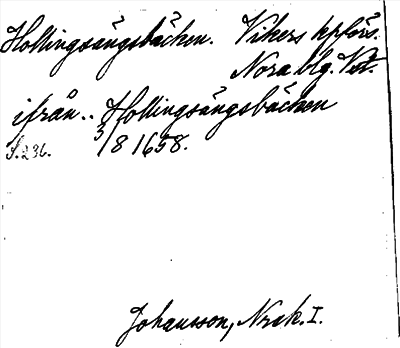 Hollingsängsbäcken. Vikers kpförs.
Nora blg. Vstm.
ifrån.. Hollingsängsbäcken
S. 236. 3/8 1658.
Johansson, Nrsk. I.